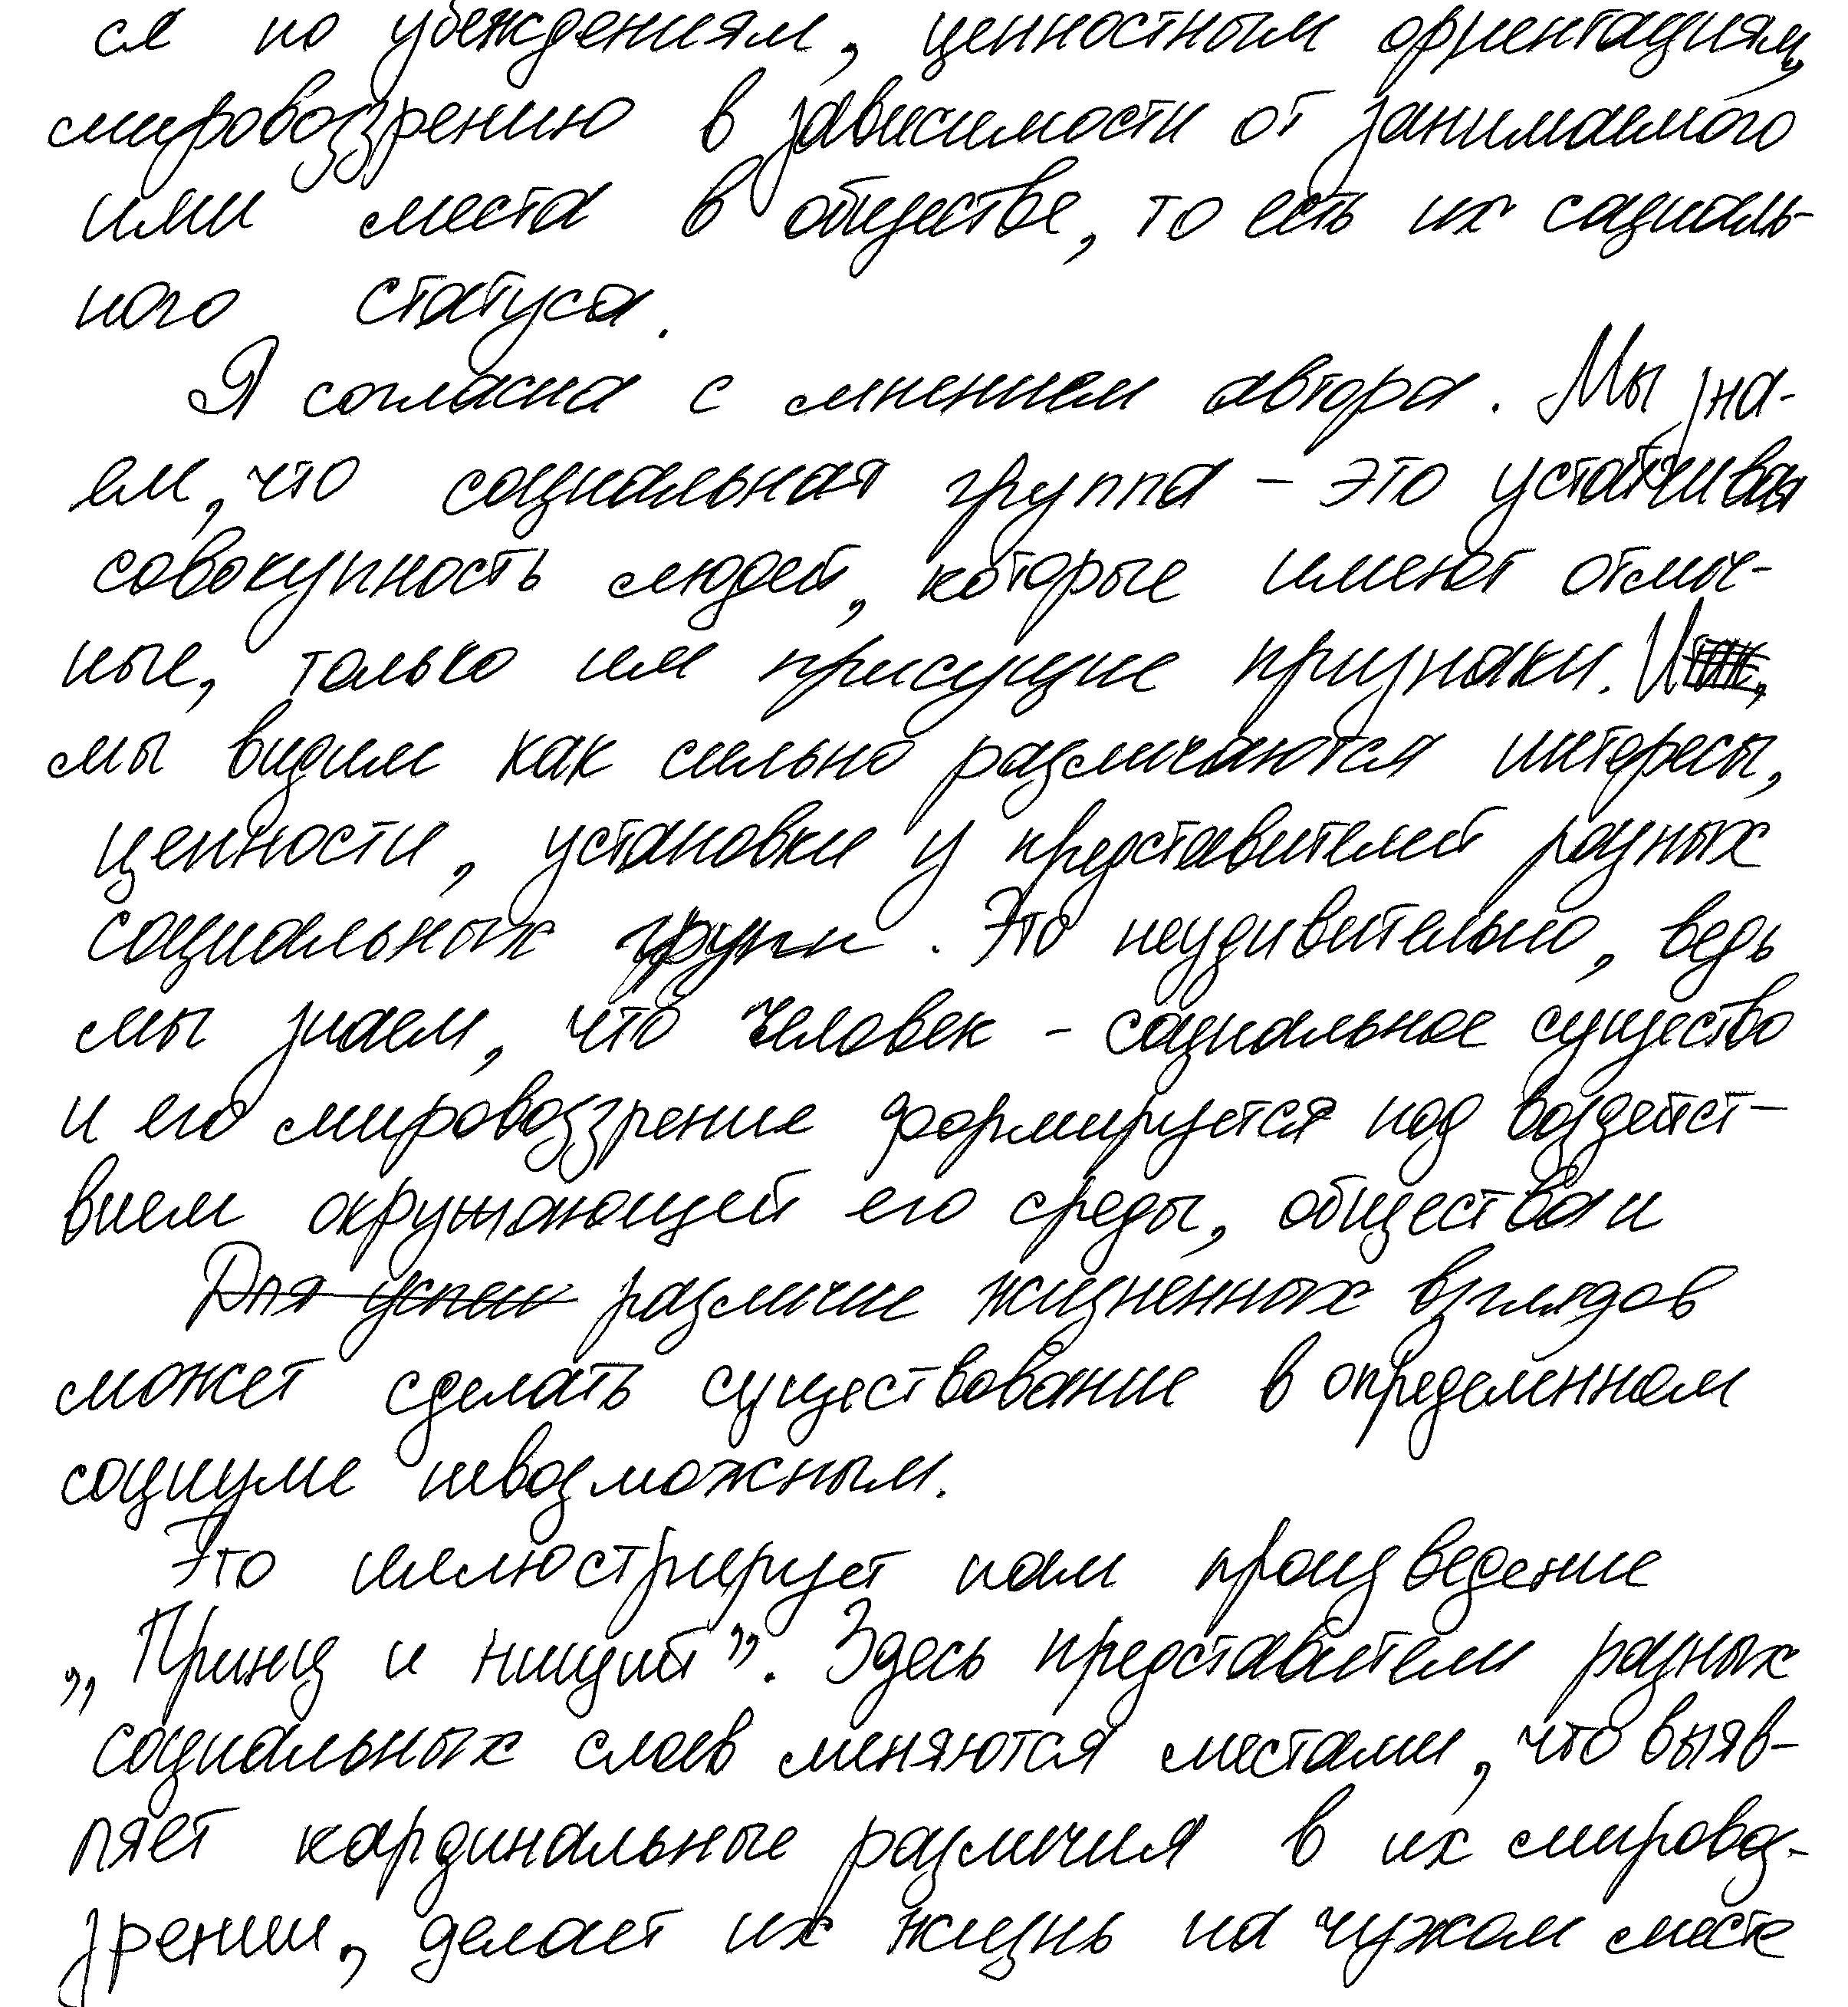 ся по убеждениям, ценностным ориентациям,
мировоззрению в зависимости от занимаемого
ими места в обществе, то есть их социаль-
ного статуса.
Я согласна с мнением автора. Мы зна-
ем, что социальная группа – это устойчивая
совокупность людей, которые имеют отлич-
ные, только им присущие признаки. Итак,
мы видим как сильно различаются интересы,
ценности, установки у представителей разных
социальных групп. Это неудивительно, ведь
мы знаем, что человек – социальное существо
и его мировоззрение формируется под воздейст-
вием окружающей его среды, общества и
Для успеш различие жизненных взглядов
может сделать существование в определённом
социуме невозможным.
Это иллюстрирует нам произведение
„Принц и нищий”. Здесь представители разных
социальных слоев меняются местами, что выяв-
ляет кардинальные различия в их мировоз-
зрении, делает их жизнь на чужом месте